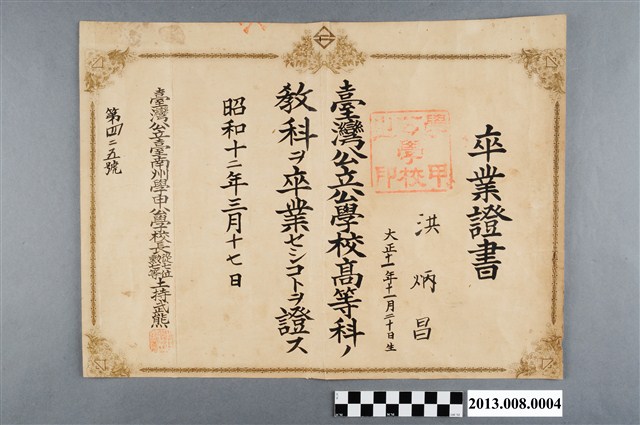 卒業證書
學甲公學校印
洪炳昌
大正十一年十一月二十日生
臺灣公立公學校高等科ノ
教科ヲ卒業セシコトヲ證ス
昭和十二年三月十七日
臺灣公立臺南州學甲公學校長從七位勲七等土持武熊
第四二五號
2013.008.0004